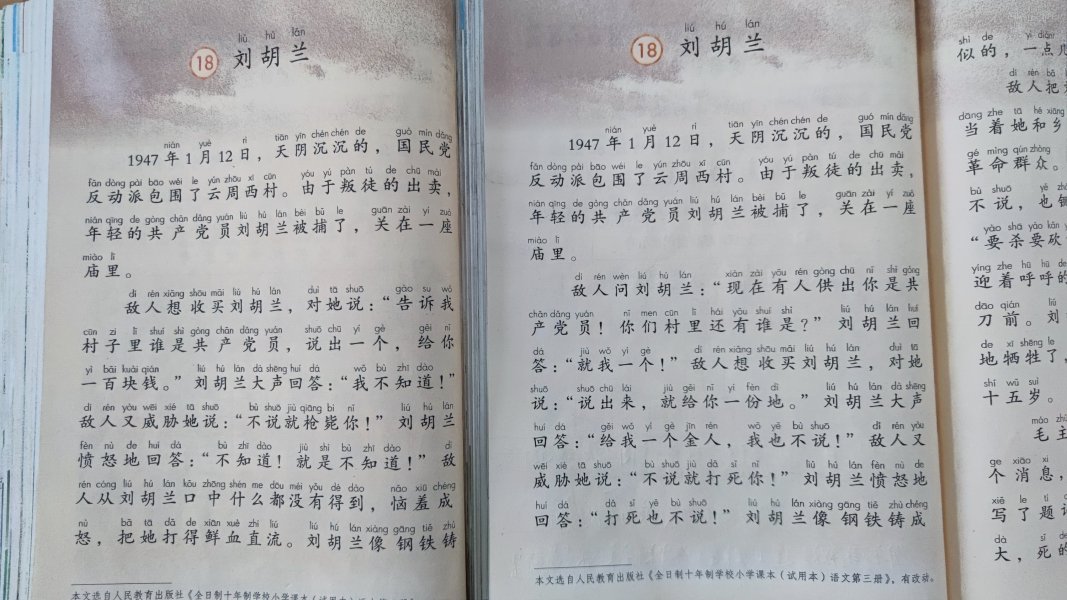 liú hú lán
18 刘胡兰
nián yuè rì tiān yīn chén chén de guó mín dǎng
1947年1月12日，天阴沉沉的，国民党
fǎn dòng pài bāo wéi le yún zhōu xī cūn yóu yú pàn tú de chū mài
反动派包围了云周西村。由于叛徒的出卖，
nián qīng de gòng chǎn dǎng yuán liú hú lán bèi bǔ le guān zài yí zuò
年轻的共产党员刘胡兰被捕了，关在一座
miào lǐ
庙里。
dí rén xiǎng shōu mǎi liú hú lán duì tā shuō gào su wǒ
敌人想收买刘胡兰，对她说：“告诉我
cūn zi lǐ shuí shì gòng chǎn dǎng yuán shuō chū yí gè gěi nǐ
村子里谁是共产党员，说出一个，给你
yì bǎi kuài qián liú hú lán dà shēng huí dá wǒ bù zhī dào
一百块钱。”刘胡兰大声回答：“我不知道！”
dí rén yòu wēi xié tā shuō bù shuō jiù qiāng bì nǐ liú hú lán
敌人又威胁她说：“不说就枪毙你！”刘胡兰
fèn nù de huí dá bù zhī dào jiù shì bù zhī dào dí
愤怒地回答：“不知道！就是不知道！”敌
rén cóng liú hú lán kǒu zhōng shén me dōu méi yǒu dé dào nǎo xiū chéng
人从刘胡兰口中什么都没有得到，恼羞成
nù bǎ tā dǎ de xiān xuè zhí liú liú hú lán xiàng gāng tiě zhù
怒，把她打得鲜血直流。刘胡兰像钢铁铸
本文选自人民教育出版社《全日制十年制学校小学课本（试用本）
liú hú lán
18 刘胡兰
nián yuè rì tiān yīn chén chén de guó mín dǎng
1947年1月12日，天阴沉沉的，国民党
fǎn dòng pài bāo wéi le yún zhōu xī cūn yóu yú pàn tú de chū mài
反动派包围了云周西村。由于叛徒的出卖，
nián qīng de gòng chǎn dǎng yuán liú hú lán bèi bǔ le guān zài yí zuò
年轻的共产党员刘胡兰被捕了，关在一座
miào lǐ
庙里。
dí rén wèn liú hú lán xiàn zài yǒu rén gòng chū nǐ shì gòng
敌人问刘胡兰：“现在有人供出你是共
chǎn dǎng yuán nǐ men cūn lǐ hái yǒu shuí shì liú hú lán huí
产党员！你们村里还有谁是？”刘胡兰回
dá jiù wǒ yí gè dí rén xiǎng shōu mǎi liú hú lán duì tā
答：“就我一个！”敌人想收买刘胡兰，对她
shuō shuō chū lái jiù gěi nǐ yí fèn dì liú hú lán dà shēng
说：“说出来，就给你一份地。”刘胡兰大声
huí dá gěi wǒ yí gè jīn rén wǒ yě bù shuō dí rén yòu
回答：“给我一个金人，我也不说！”敌人又
wēi xié tā shuō bù shuō jiù dǎ sǐ nǐ liú hú lán fèn nù de
威胁她说：“不说就打死你！”刘胡兰愤怒地
huí dá dǎ sǐ yě bù shuō liú hú lán xiàng gāng tiě zhù chéng
回答：“打死也不说！”刘胡兰像钢铁铸成
本文选自人民教育出版社《全日制十年制学校小学课本（试用本）语文第三册》，有改动。
shì de yì diǎnr
似的，一点儿
dí rén bǎ
敌人把
dāng zhe tā hé xiāng
当着她和乡
gé mìng qún zhòng
革命群众。
bù shuō yě
不说，也
yào shā yào kǎn
“要杀要砍
yíng zhe hū hū de
迎着呼呼的
dāo qián liú
刀前。刘
de xī shēng le
地牺牲了，
shí wǔ suì
十五岁。
máo zhǔ
毛主
ge xiāo xi
个消息，
xiě le tí
写了题
dà sǐ de
大，死的